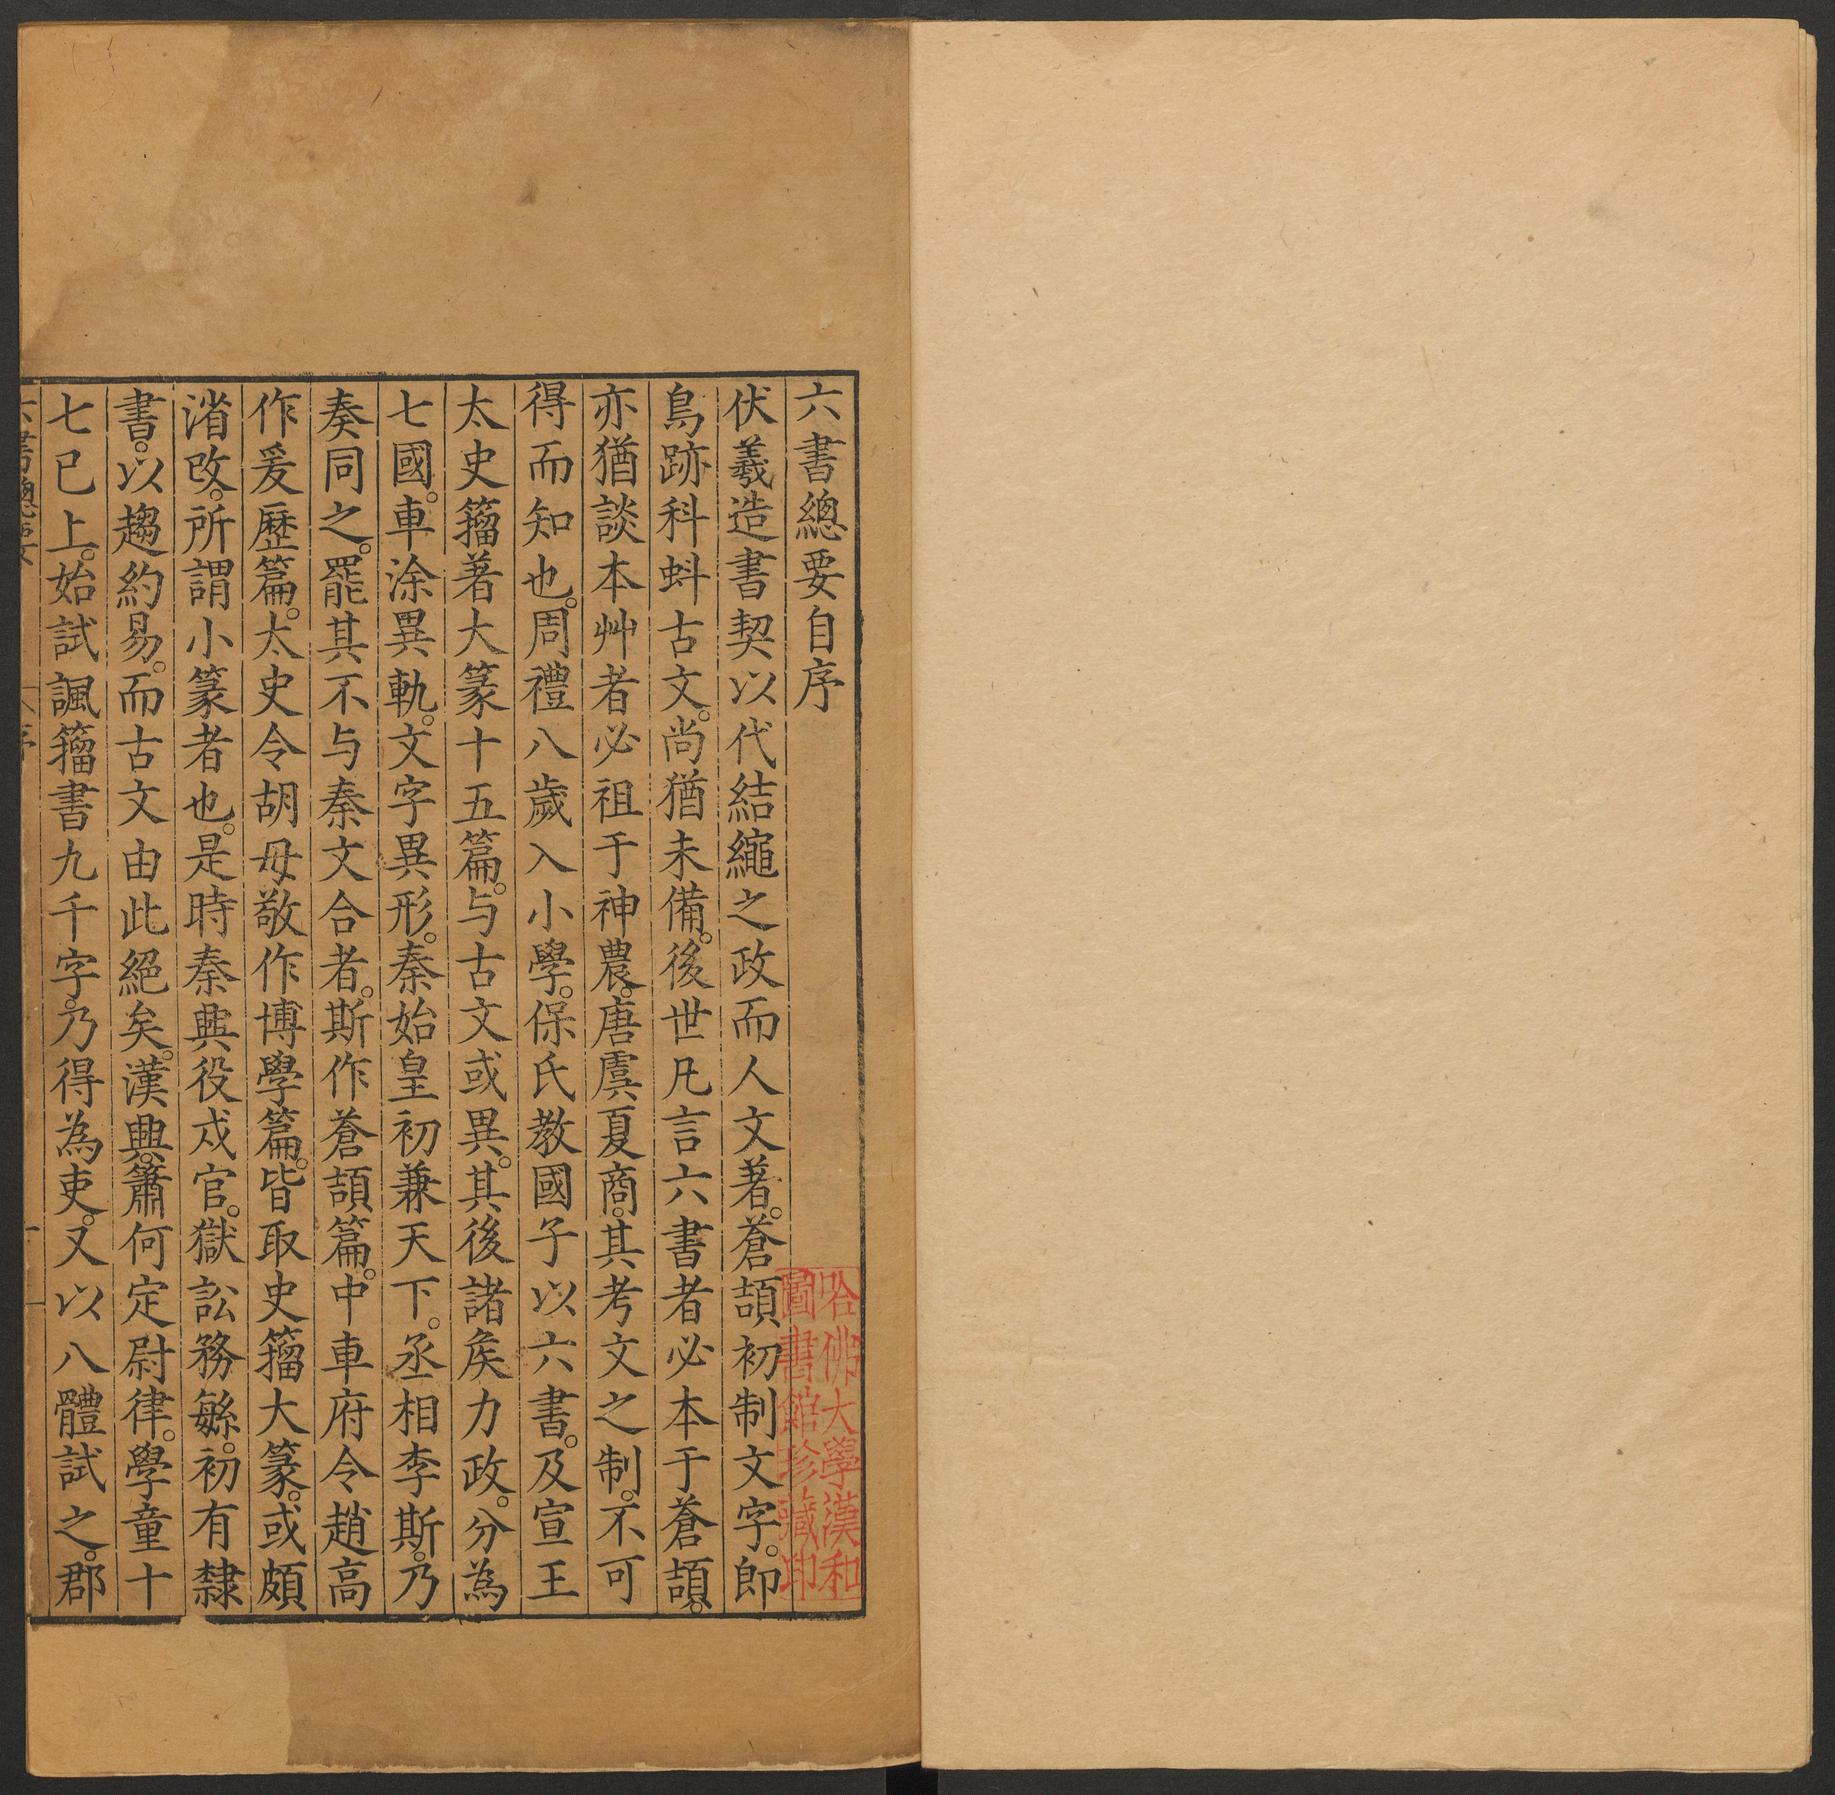 六書總要自序
伏羲造書契以代結繩之政而人文著。蒼頡初制文字。即
鳥跡科蚪古文。尚猶未備。後世凡言六書者必本于蒼頡。
亦猶談本艸者必祖于神農。唐虞夏商。其考文之制。不可
得而知也。周禮八歲入小學。保氏教國子以六書。及宣王
太史籀著大篆十五篇。与古文或異。其後諸矦力政。分為
七國。車涂異軌。文字異形。秦始皇初兼天下。丞相李斯。乃
奏同之。罷其不与秦文合者。斯作蒼頡篇。中車府令趙高
作爰歷篇。太史令胡毋敬作博學篇。皆取史籀大篆。或頗
渻改。所謂小篆者也。是時秦興役戍官。獄訟務緐。初有隸
書。以趨約易。而古文由此絕矣。漢興。簫何定尉律。學童十
七巳上。始試諷籀書九千字。乃得為吏。又以八體試之。郡
六書總要
序
一
哈佛大學漢和
圖書館珍藏印